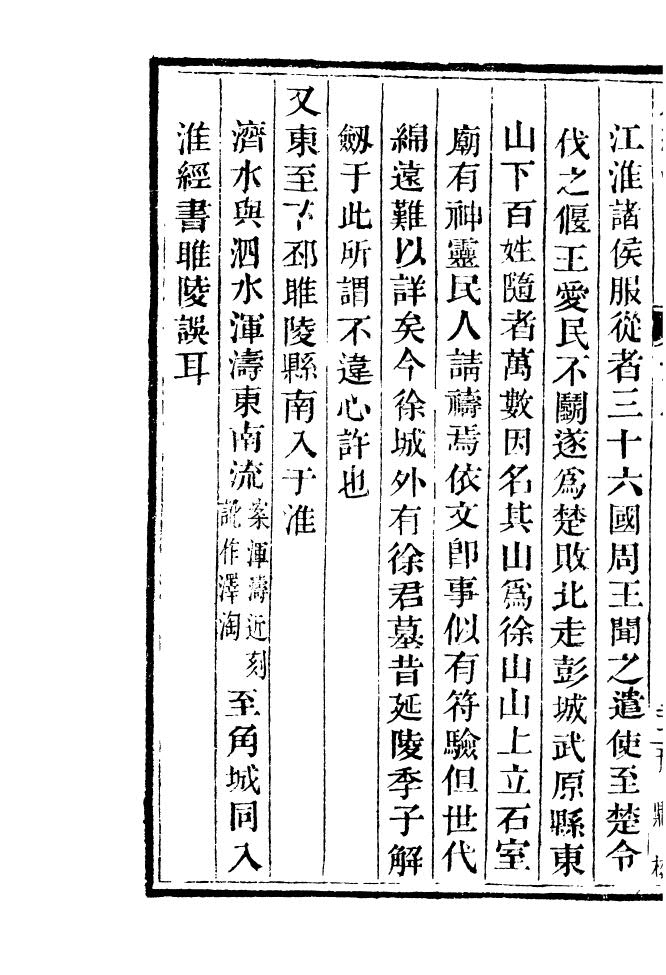 江淮諸侯服從者三十六國周王聞之遣使至楚令
伐之偃王愛民不鬭遂爲楚敗北走彭城武原縣東
山下百姓隨者萬數因名其山爲徐山山上立石室
廟有神靈民人請禱焉依文卽事似有符驗但世代
綿遠難以詳矣今徐城外有徐君墓昔延陵季子解
劔于此所謂不違心許也
又東至下邳睢陵縣南入于淮
濟水與泗水渾濤東南流案渾濤近刻訛作澤淘至角城同入
淮經書睢陵誤耳